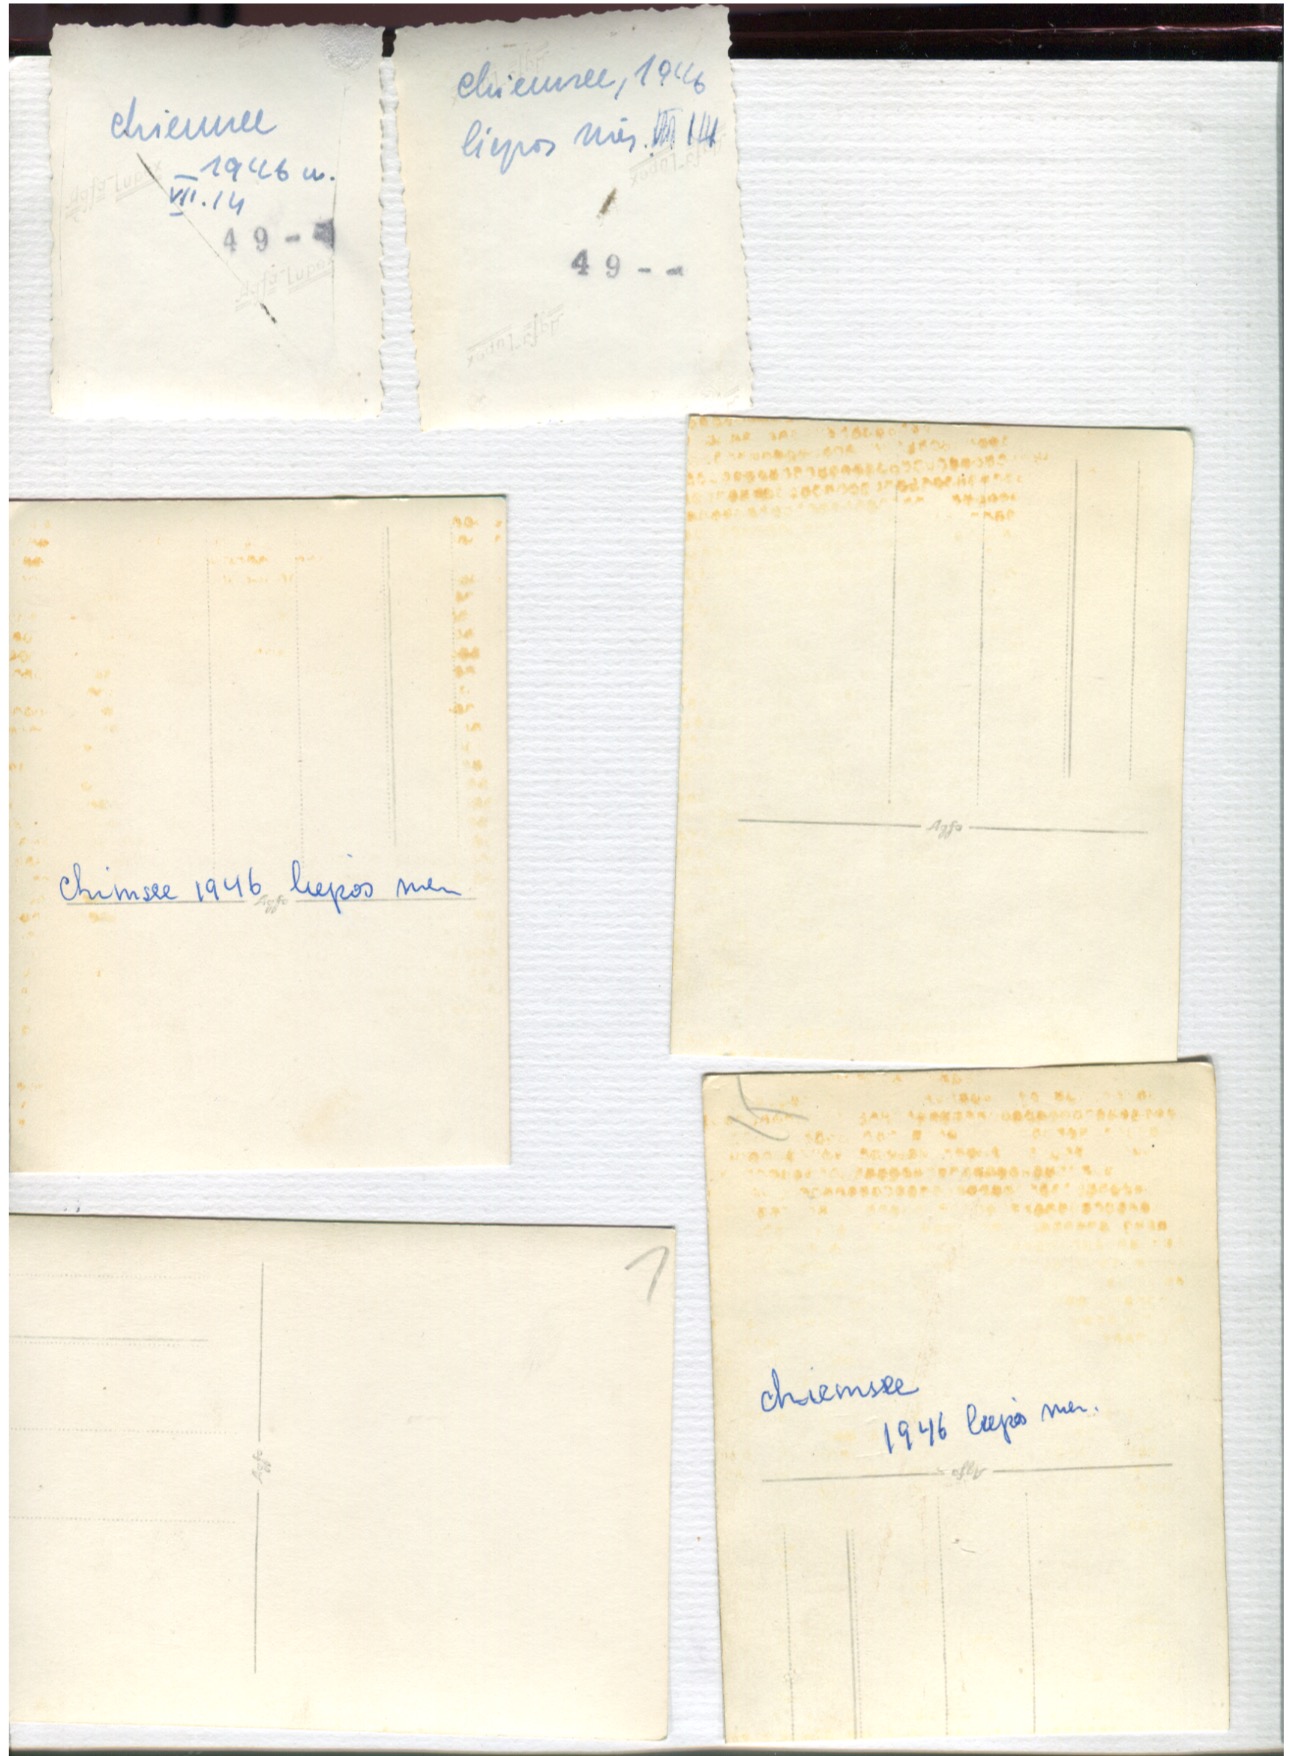 Chiemsee
1946 m.
VII.14
49--
Agfa-Lupex
Agfa-Lupex
Chiemsee, 1946
liepos mės. VII 14
49--
Agfa-Lupex
Agfa-Lupex
Agfa
Chimsee 1946 liepos men
Agfa
Chiemsee
1946 liepos men.
Agfa
1
Agfa